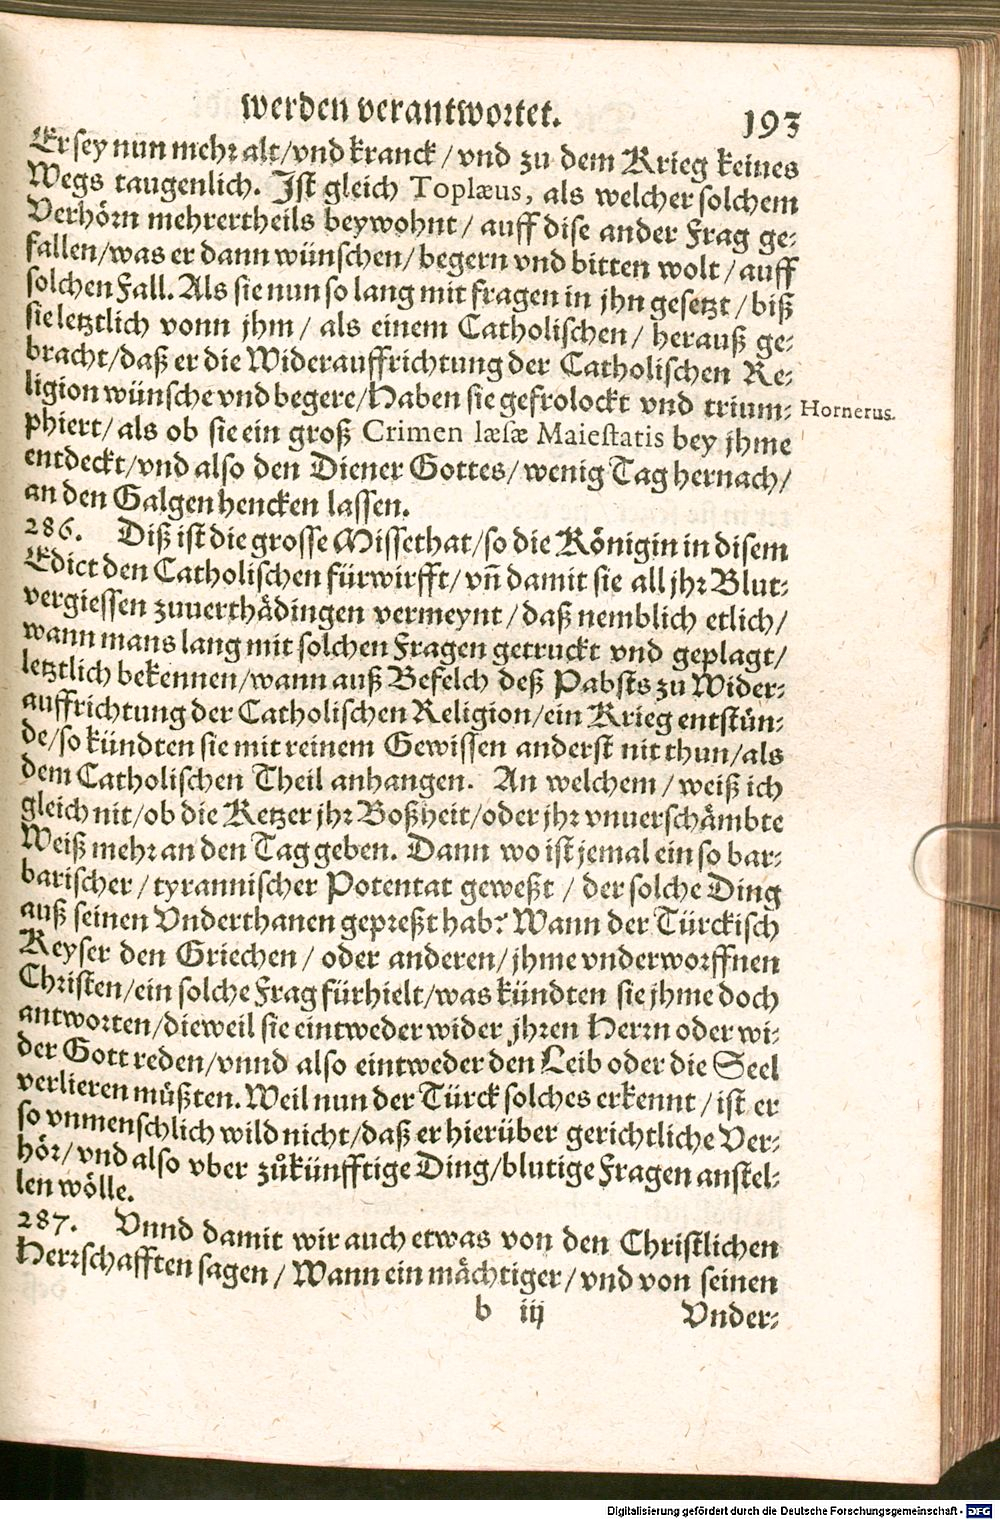 werden verantwortet. 193
Er sey nun mehr alt/vnd kranck/vnd zu dem Krieg keines
Wegs taugenlich. Ist gleich Toplæus, als welcher solchem
Verhörn mehrertheils beywohnt/ auff dise ander Frag ge-
fallen/was er dann wünschen/begern vnd bitten wolt/auff
solchen Fall. Als sie nun so lang mit fragen in jhn gesetzt/biß
sie letztlich vonn jhm/ als einem Catholischen/ herauß ge-
bracht/daß er die Widerauffrichtung der Catholischen Re-
ligion wünsche vnd begere/Haben sie gefrolockt vnd trium-
Hornerus.
phiert/als ob sie ein groß Crimen læsæ Maiestatis bey jhme
entdeckt/vnd also den Diener Gottes/wenig Tag hernach/
an den Galgen hencken lassen.
286. Diß ist die grosse Missethat/so die Königin in disem
Edict den Catholischen fürwirfft/vñ damit sie all jhr Blut-
vergiessen zuuerthädingen vermeynt/daß nemblich etlich/
wann mans lang mit solchen Fragen getruckt vnd geplagt/
letztlich bekennen/wann auß Befelch deß Pabsts zu Wider-
auffrichtung der Catholischen Religion/ein Krieg entstün-
de/so kündten sie mit reinem Gewissen anderst nit thun/als
dem Catholischen Theil anhangen. An welchem/weiß ich
gleich nit/ob die Ketzer jhr Boßheit/oder jhr vnuerschämbte
Weiß mehr an den Tag geben. Dann wo ist jemal ein so bar-
barischer/tyrannischer Potentat geweßt/der solche Ding
auß seinen Vnderthanen gepreßt hab? Wann der Türckisch
Keyser den Griechen/ oder anderen/jhme vnderworffnen
Christen/ein solche Frag fürhielt/was kündten sie jhme doch
antworten/dieweil sie eintweder wider jhren Herrn oder wi-
der Gott reden/vnnd also eintweder den Leib oder die Seel
verlieren müßten. Weil nun der Türck solches erkennt/ist er
so vnmenschlich wild nicht/daß er hierüber gerichtliche Ver-
hör/vnd also vber zůkünfftige Ding/blutige Fragen anstel-
len wölle.
287. Vnnd damit wir auch etwas von den Christlichen
Herrschafften sagen/Wann ein mächtiger/vnd von seinen
b iij Vnder-
Digitalisierung gefördert durch die Deutsche Forschungsgemeinschaft - DFG